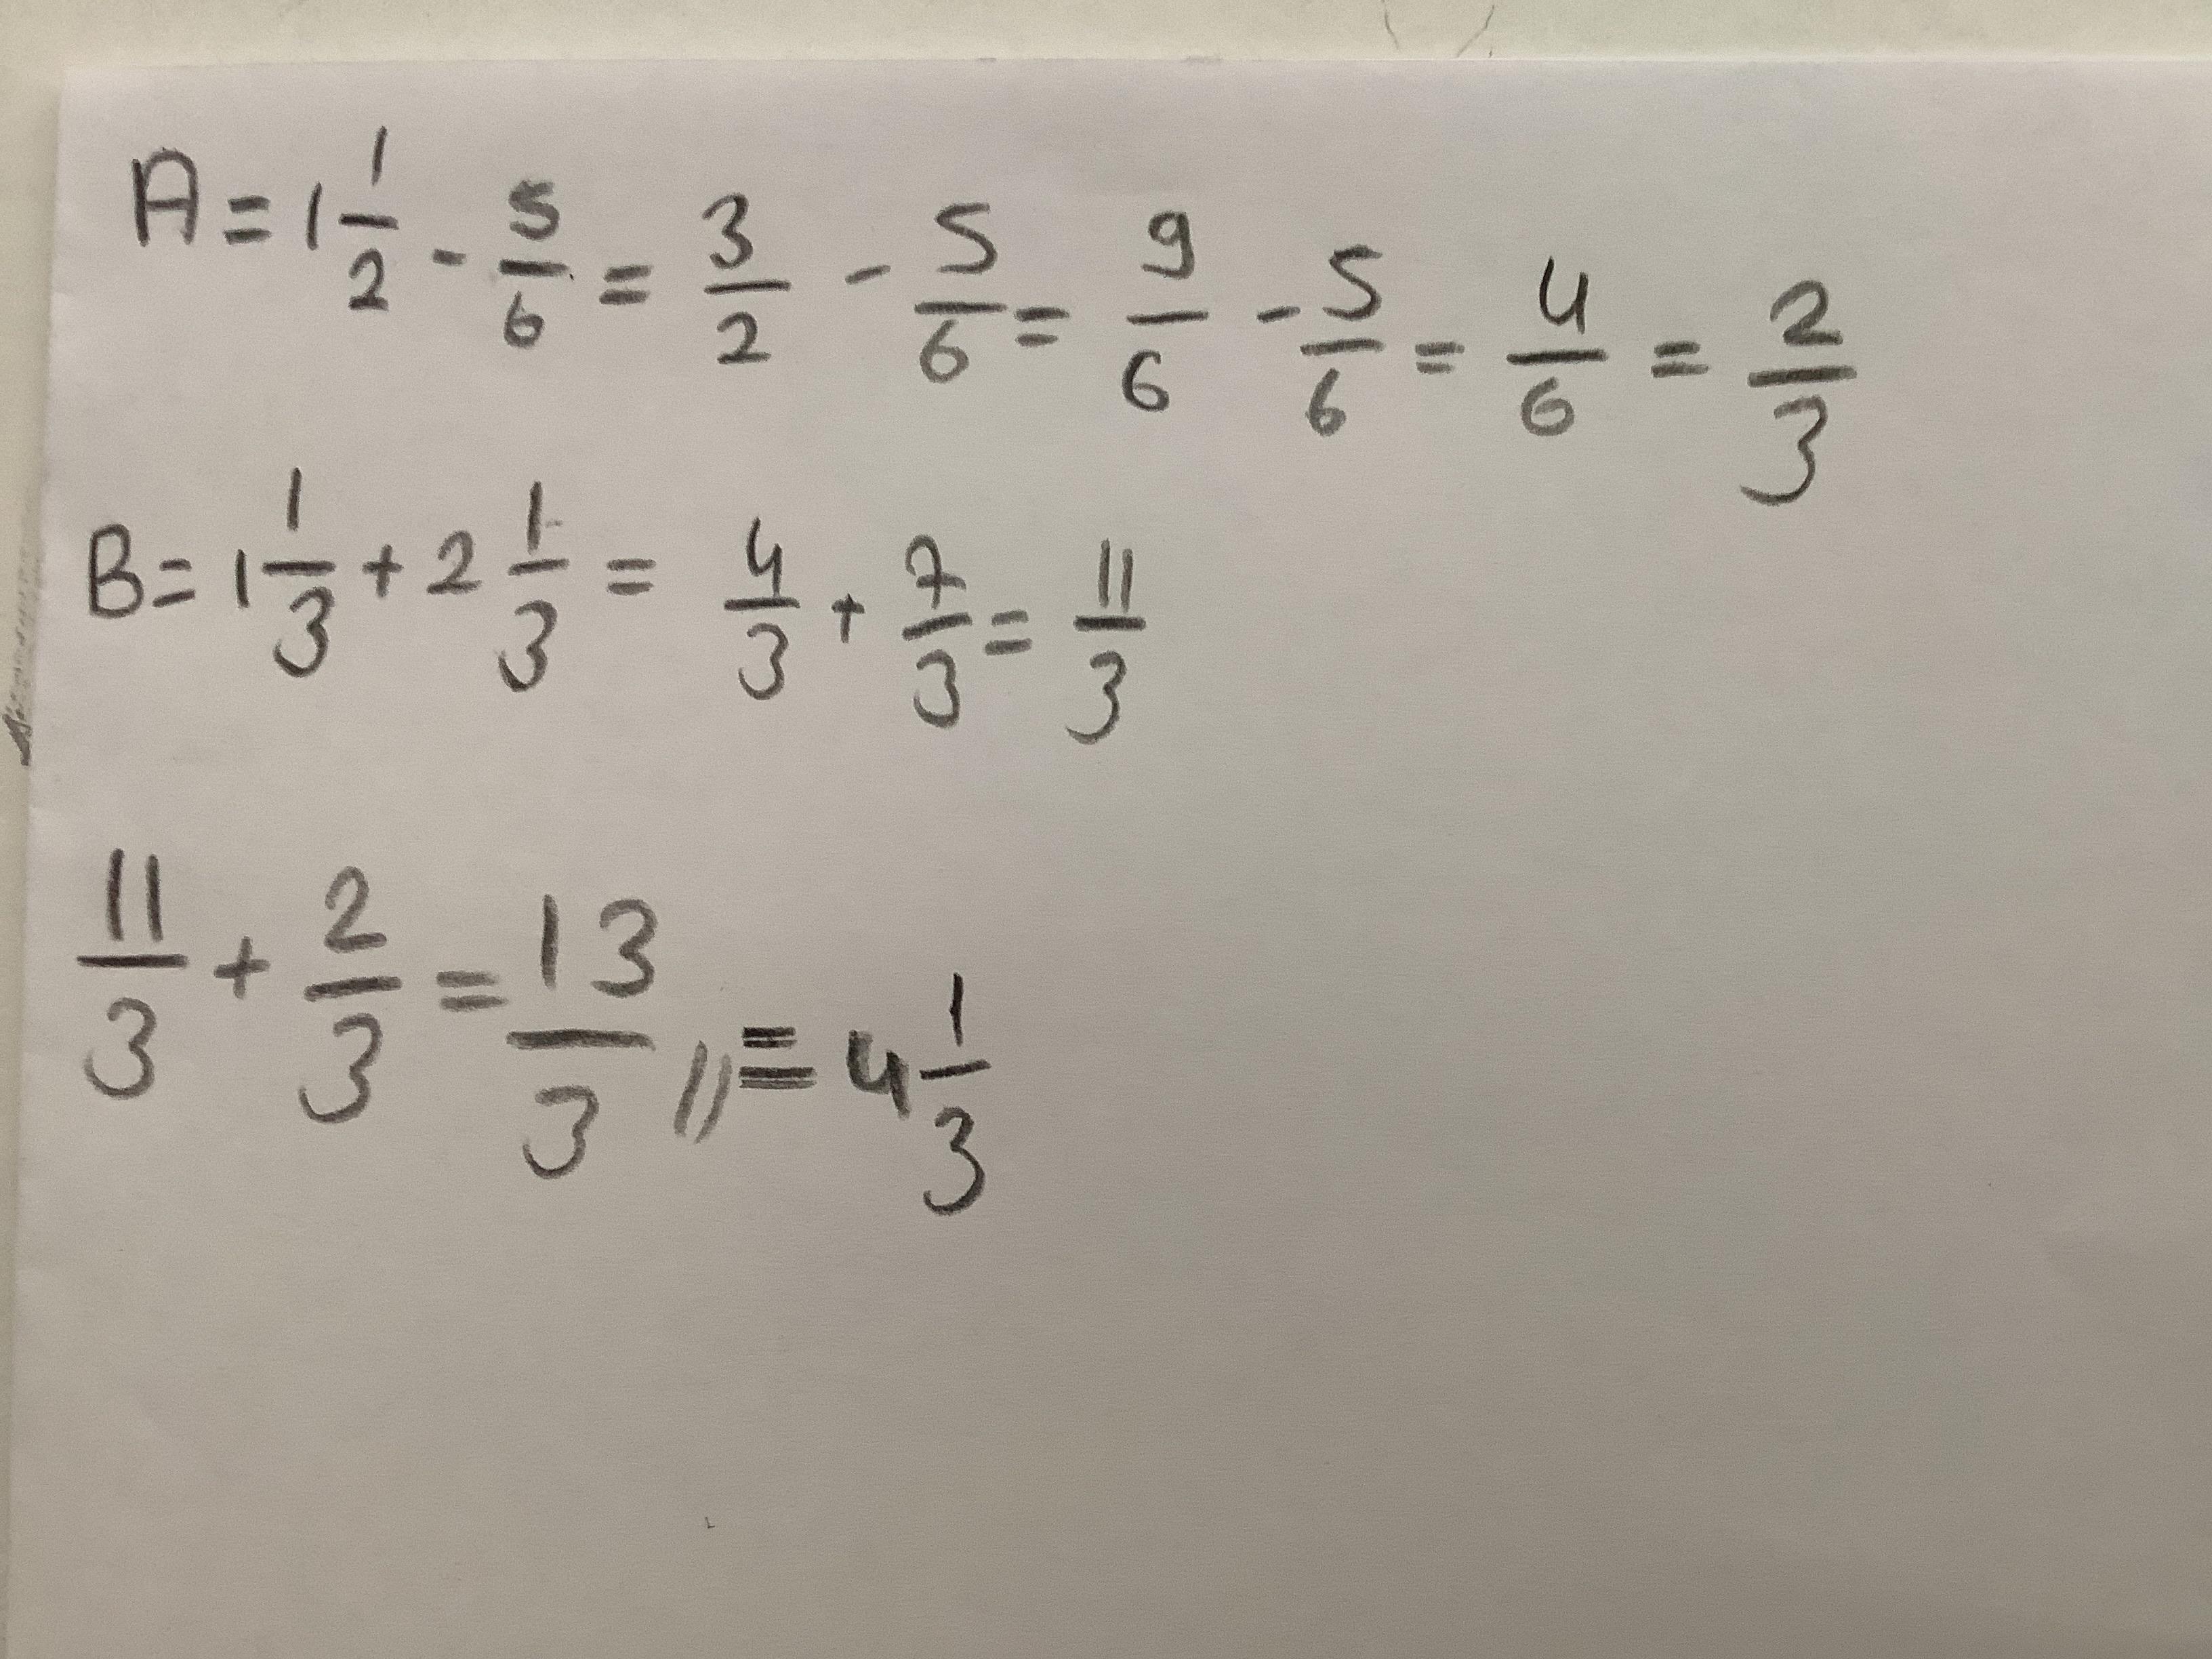 A = 1 1/2 - 5/6 = 3/2 - 5/6 = 9/6 - 5/6 = 4/6 = 2/3
B = 1 1/3 + 2 1/3 = 4/3 + 7/3 = 11/3
11/3 + 2/3 = 13/3 // = 4 1/3